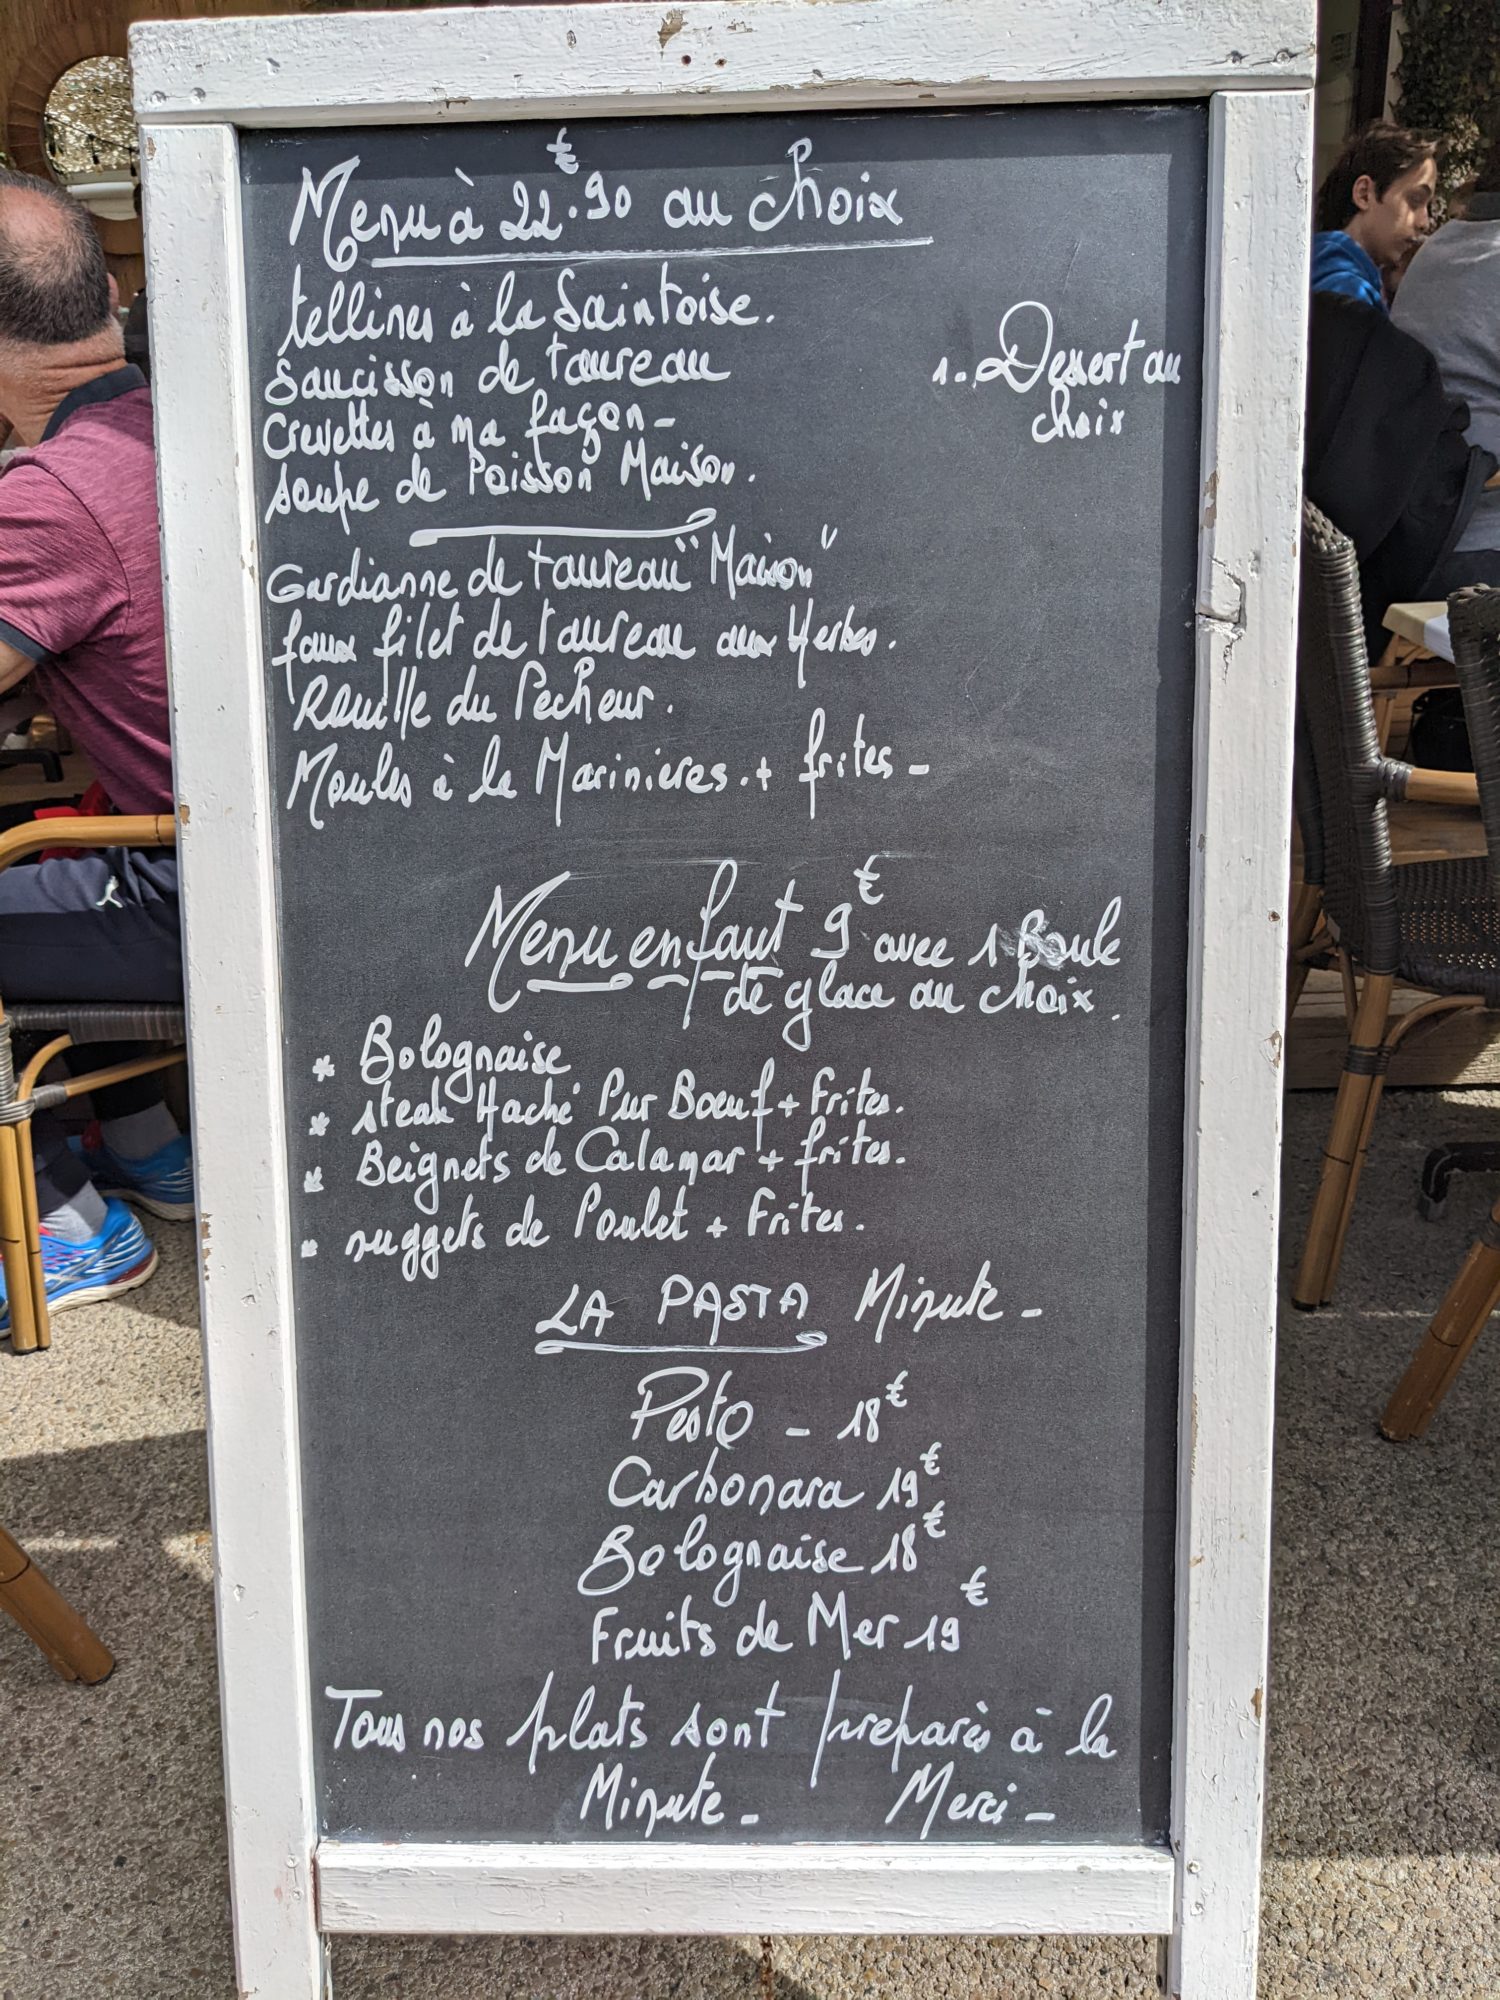 Menu à 22€.90 au choix
tellines à la Saintoise.
Saucisson de taureau
1. Dessert au
choix
Crevettes à ma façon -
soupe de Poisson Maison.
Gardianne de taureau "Maison"
faux filet de taureau aux Herbes.
Rouille du Pecheur.
Moules à la Marinieres. + frites -
Menu enfant 9€ avec 1 Boule
de glace au choix.
* Bolognaise
* steak Haché Pur Boeuf + Frites.
* Beignets de Calamar + frites.
* nuggets de Poulet + Frites.
LA PASTA Minute -
Pesto - 18€
Carbonara 19€
Bolognaise 18€
Fruits de Mer 19€
Tous nos plats sont preparès à la
Minute - Merci -